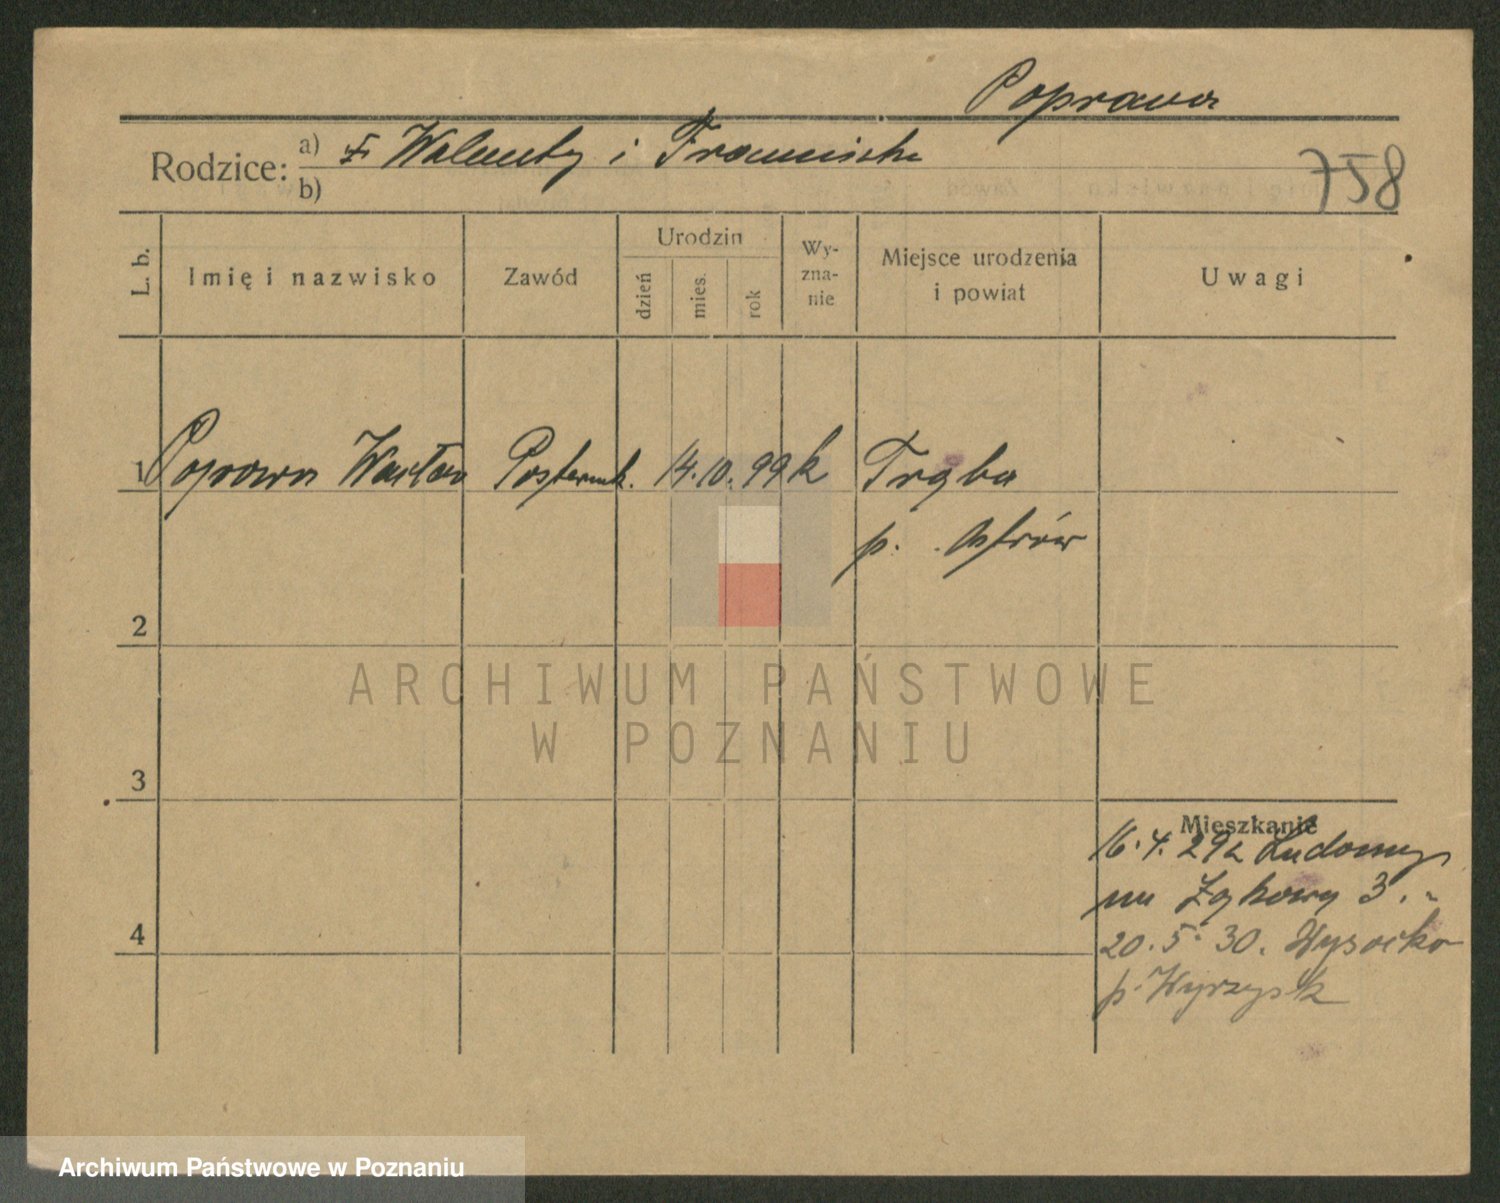 Poprawa
Rodzice: a) Walenty i Franciszka
b)
758
L. b.
Imię i nazwisko
Zawód
Urodzin
dzień
mies.
rok
Wy-
zna-
nie
Miejsce urodzenia
i powiat
Uwagi
1 Poprawa Wacław Posterunk. 14. 10. 99 k Trąba
p. Ostrów
2
ARCHIWUM PAŃSTWOWE
W POZNANIU
3
Mieszkanie
16. 4. 29 z Ludomy
na Żąkowy 3.
4
20. 5. 30. Wysocko
p. Wyrzysk
Archiwum Państwowe w Poznaniu